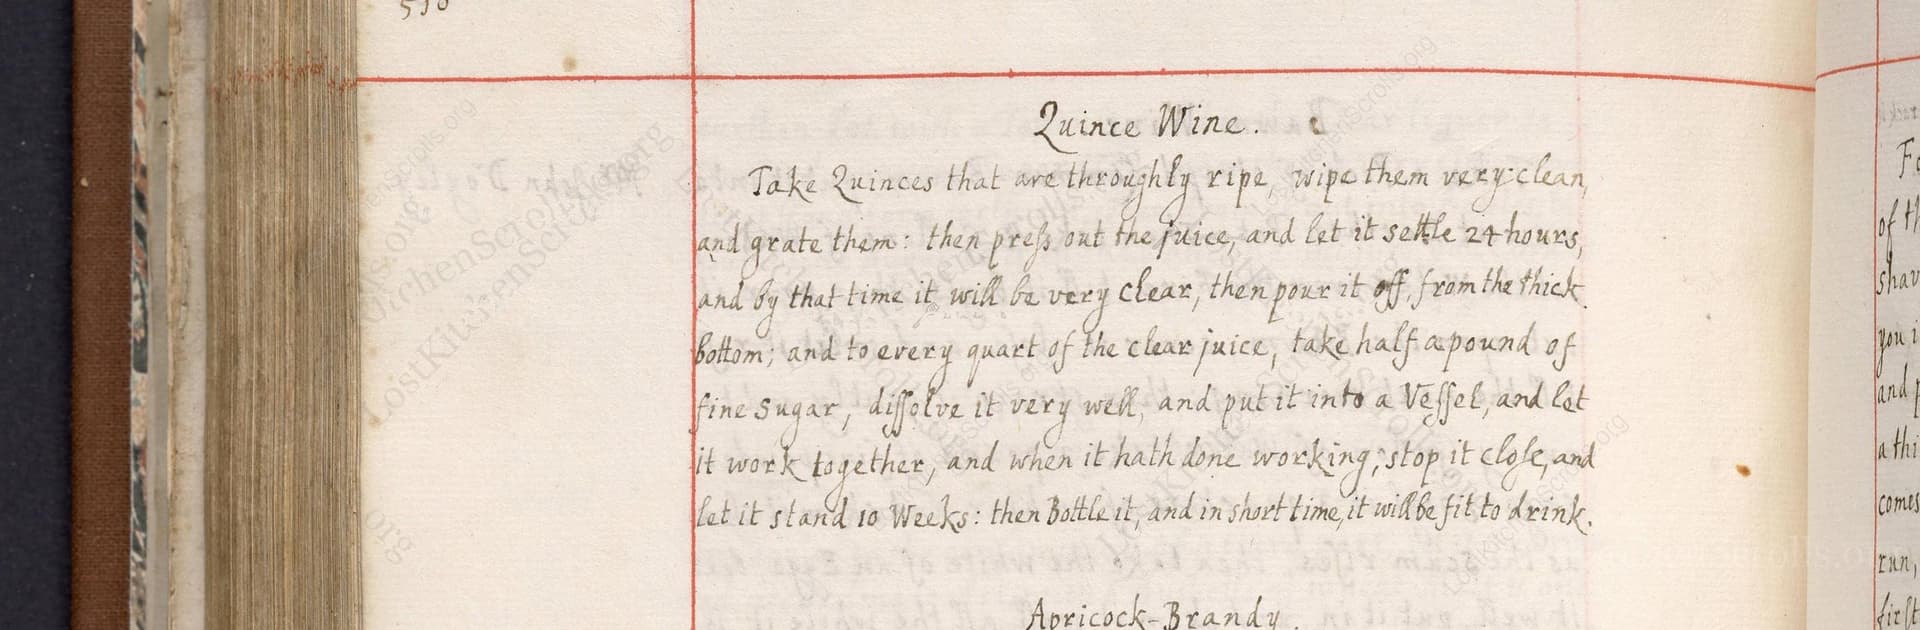 Quince Wine.
Take Quinces that are throughly ripe, wipe them very clean,
and grate them: then preſs out the juice, and let it settle 24 hours,
and by that time it will be very clear, then pour it off, from the thick
bottom; and to every quart of the clear juice, take half a pound of
fine Sugar, diſſolve it very well, and put it into a Veſſel, and let
it work together, and when it hath done working, stop it cloſe, and
let it stand 10 Weeks: then Bottle it, and in short time, it will be fit to drink.
Apricock-Brandy.
of
you
and
comes
run,
LostKitchenScrolls.org